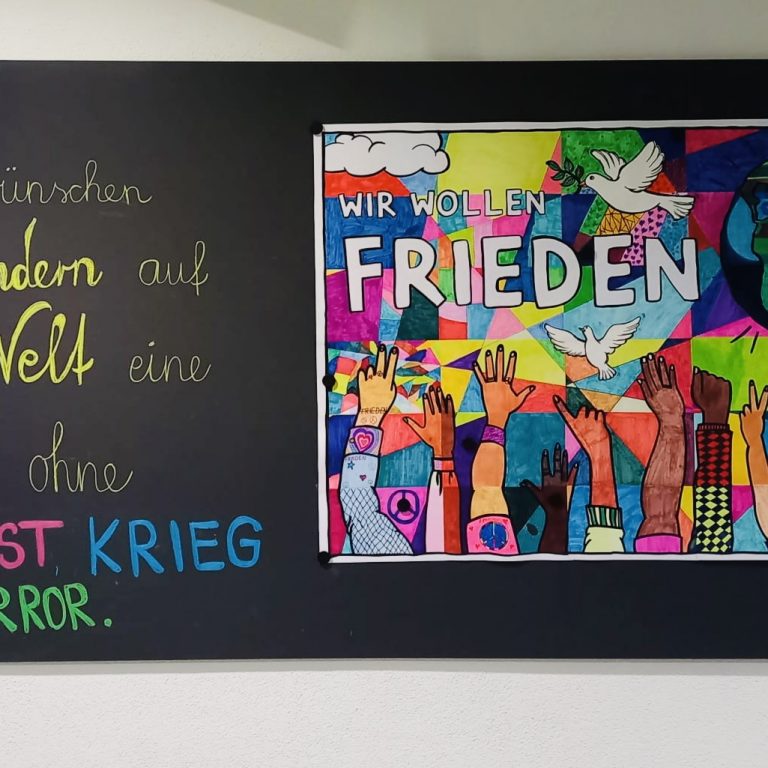 ünschen
ndern auf
Welt eine
ohne
ST, KRIEG
RROR.
WIR WOLLEN
FRIEDEN
FRIEDEN
FRIEDEN